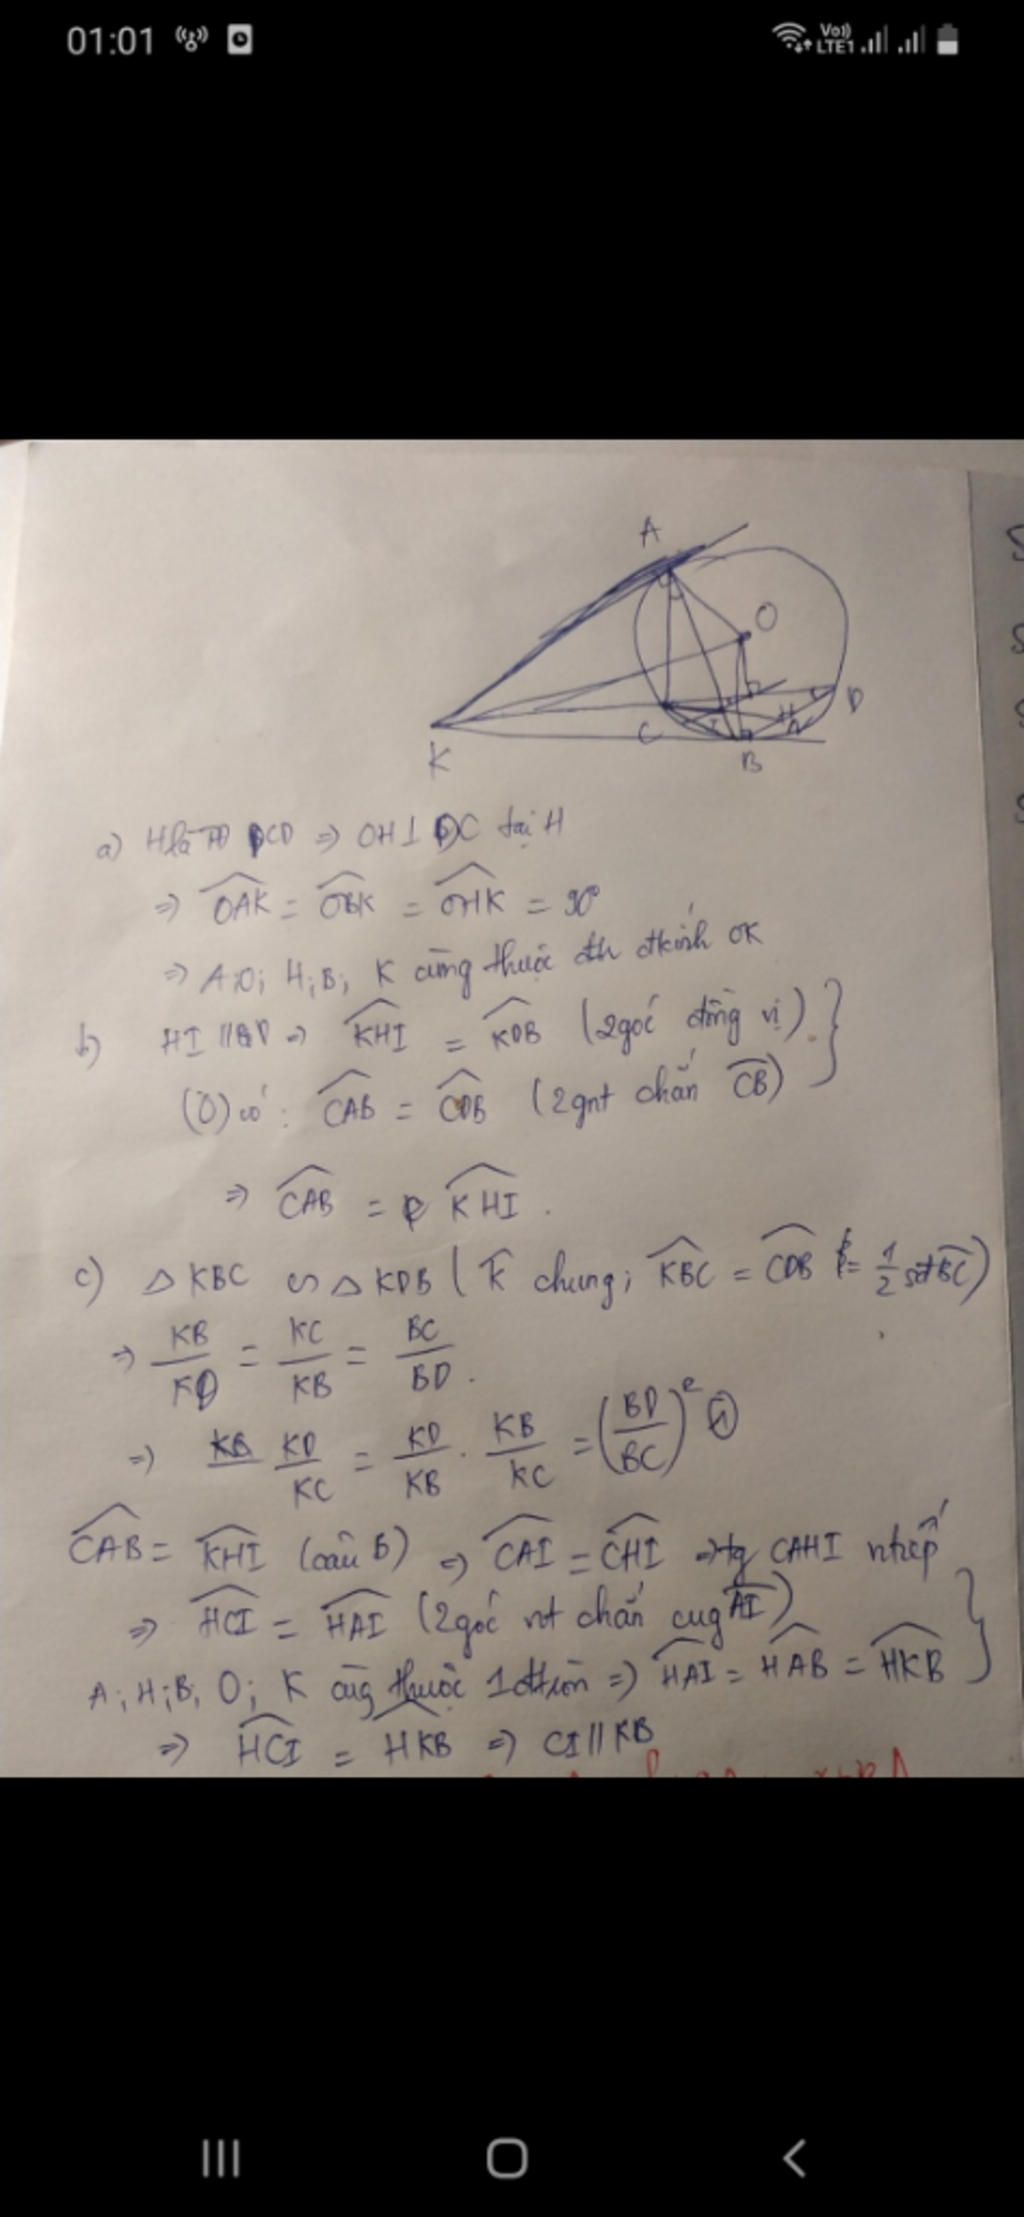 01:01
Vo)) LTE1
A
O
C
I
H
D
K
B
a) H là TĐ CD => OH ⊥ DC tại H
=> OAK = OBK = OHK = 90°
=> A; O; H; B; K cùng thuộc đtr đkính OK
b) HI // BD => KHI = KDB (2 góc đồng vị)
(O) có: CAB = CDB (2 gnt chắn CB)
=> CAB = KHI.
c) Δ KBC ∽ Δ KDB ( K chung; KBC = CDB = 1/2 sđ BC)
=> KB/KD = KC/KB = BC/BD.
=> KD/KC = KD/KB . KB/KC = (BD/BC)² ①
CAB = KHI (câu b) => CAI = CHI => tg CAHI ntiếp
=> HCI = HAI (2 góc nt chắn cug AI)
A; H; B; O; K cùg thuộc 1 đtròn => HAI = HAB = HKB
=> HCI = HKB => CI // KB